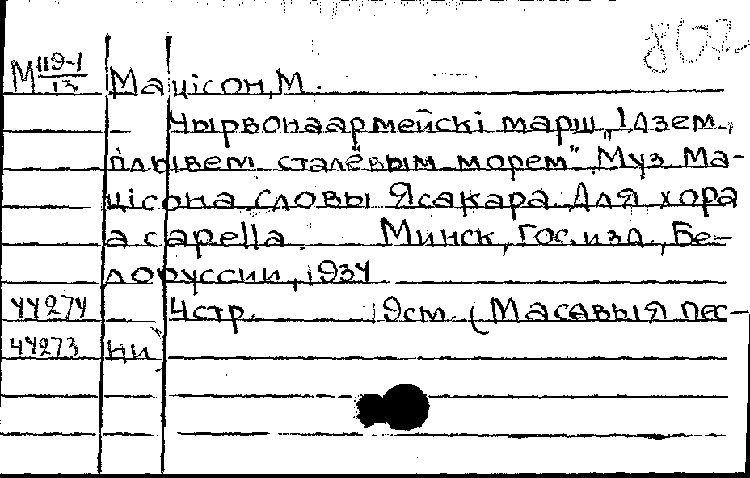 862
М 119-1/13 Мацісон, М.
Чырвонаармейскі марш „Ідзем,
плывем сталёвым морем" Муз Ма-
цісона словы Ясакара Для хора
a capella. Минск, Гос. изд., Бе-
лоруссии, 1934
44274 4 стр. 19 cm. (Масавыя пес-
44273 ни)